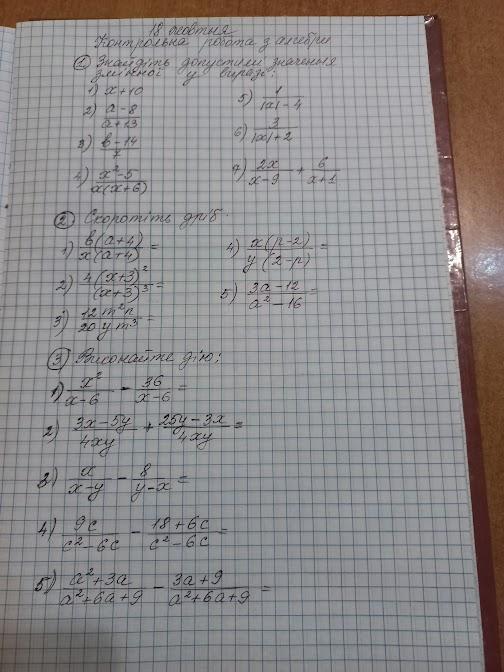 18 жовтня
Контрольна робота з алгебри
1 Знайдіть допустимі значення
змінної у виразі:
1) x+10
2) a-8/a+13
3) b-14/7
4) x²-5/x(x+6)
5) 1/|x|-4
6) 3/|x|+2
7) 2x/x-9 + 6/x+1
2 Скоротіть дріб.
1) b(a+4)/x(a+4) =
2) 4(x+3)²/(x+3)³ =
3) 12m²n/20ym³ =
4) x(p-2)/y(2-p) =
5) 3a-12/a²-16 =
3 Виконайте дію:
1) x²/x-6 - 36/x-6 =
2) 3x-5y/4xy + 25y-3x/4xy =
3) x/x-y - 8/y-x =
4) 9c/c²-6c - 18+6c/c²-6c =
5) a²+3a/a²+6a+9 - 3a+9/a²+6a+9 =